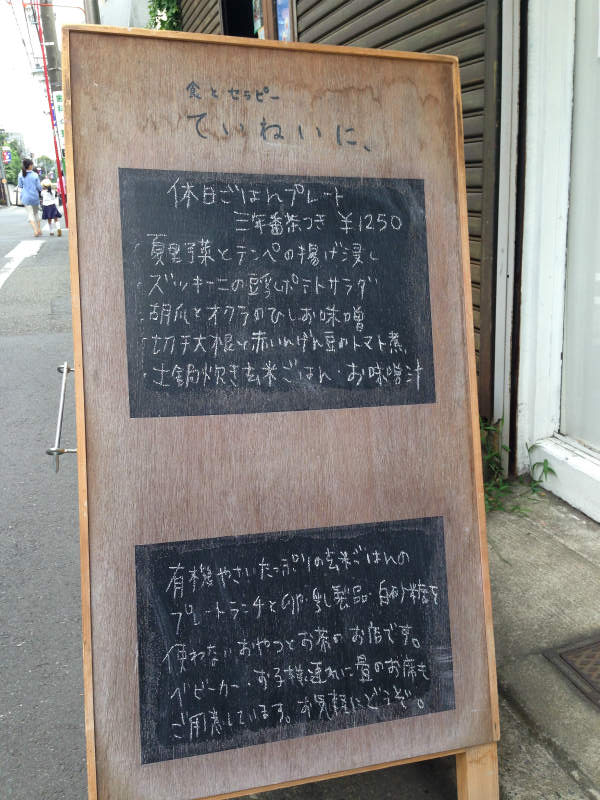 食とセラピー
ていねいに、
休日ごはんプレート
三年番茶つき ¥1250
・夏野菜とテンペの揚げ浸し
・ズッキーニの豆乳ポテトサラダ
・胡瓜とオクラのひしお味噌
・切干大根と赤いんげん豆のトマト煮
・土鍋炊き玄米ごはん・お味噌汁
有機やさいたっぷりの玄米ごはんの
プレートランチと卵・乳製品・白砂糖を
使わないおやつとお茶のお店です。
ベビーカー・お子様連れに畳のお席も
ご用意しています。お気軽にどうぞ。